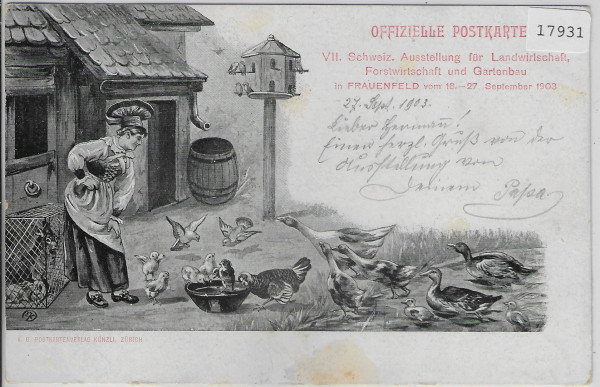 OFFIZIELLE POSTKARTE
17931
VII. Schweiz. Ausstellung für Landwirtschaft,
Forstwirtschaft und Gartenbau
in FRAUENFELD vom 18.–27. September 1903
27. Sept. 1903.
Lieber Herman!
Einen herzl. Gruß von der
Ausstellung von
Deinem Papa
A. G. POSTKARTENVERLAG KÜNZLI, ZÜRICH